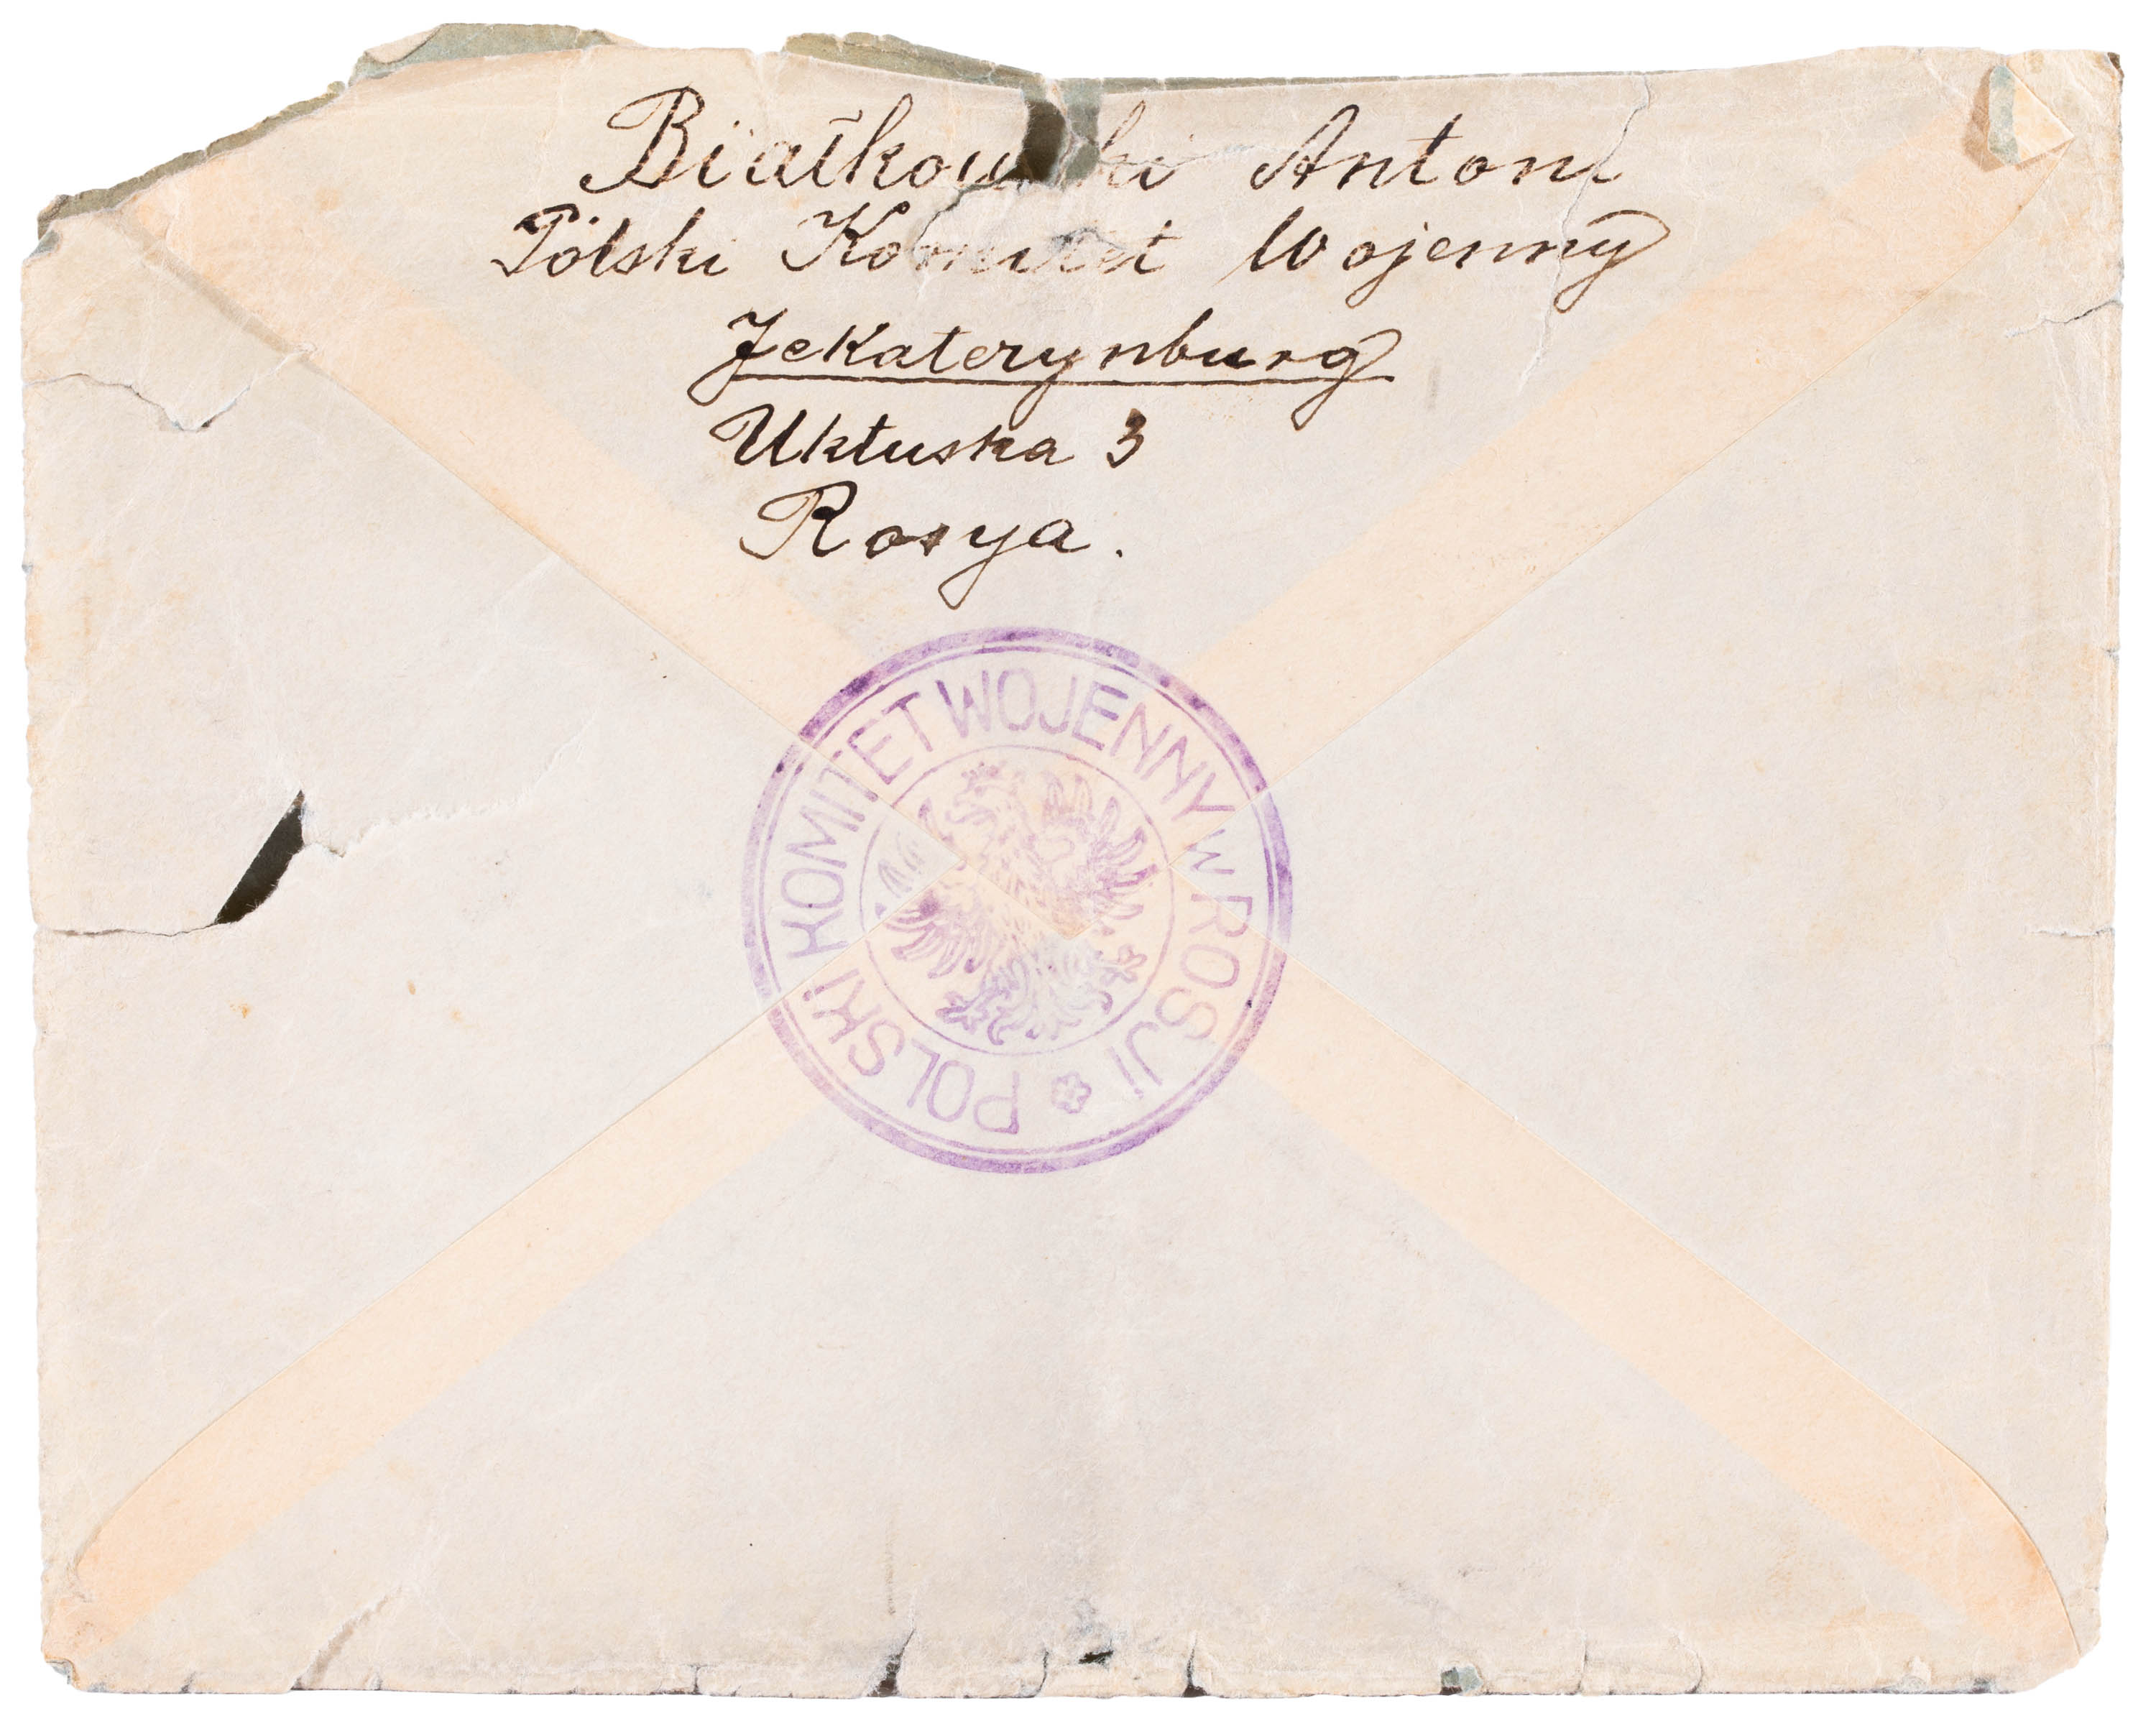 Białkowski Antoni
Polski Komitet Wojenny
Jekaterynburg
Uktuska 3
Rosya.
POLSKI KOMITET WOJENNY W ROSJI